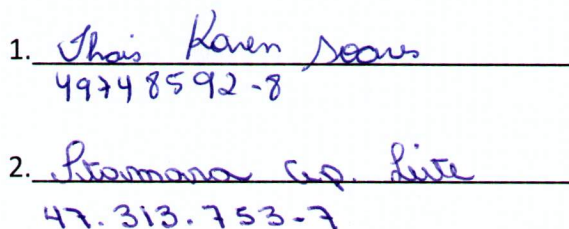 1. Thais Karen Soares
49748592-8
2. Itamara Ap. Leite
47.313.753-7